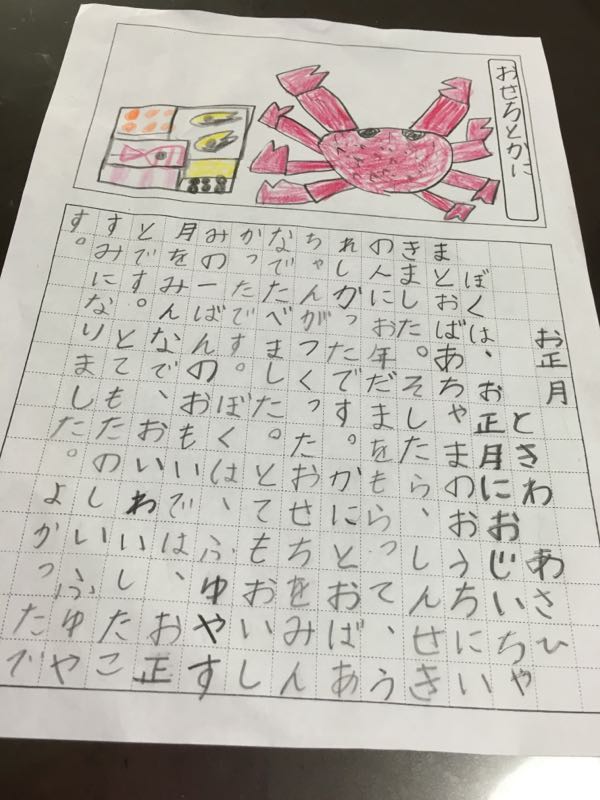 おせちとかに
お正月
とさわ あさひ
ぼくは、お正月におじいちゃ
まとおばあちゃまのおうちにい
きました。そしたら、しんせき
の人にお年だまをもらって、う
れしかったです。かにとおばあ
ちゃんがつくったおせちをみん
なでたべました。とてもおいし
かったです。ぼくは、ふゆやす
みの一ばんのおもいでは、お正
月をみんなで、おいわいしたこ
とです。とてもたのしいふゆや
すみになりました。よかったで
す。